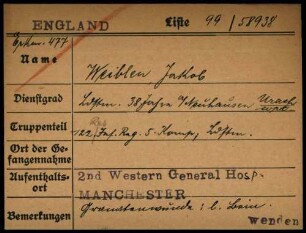 ENGLAND Liste 99/58938
477
Name Weiblen Jakob
Dienstgrad Ldstm. 38 Jahre Neuhausen Urach
Truppenteil Res
122 Inf. Reg. 5. Komp, Ldstm.
Ort der Ge-
fangennahme
Aufenthalts-
ort 2nd Western General Hosp.
MANCHESTER
Bemerkungen Granatenwunde: l. Bein.
wenden